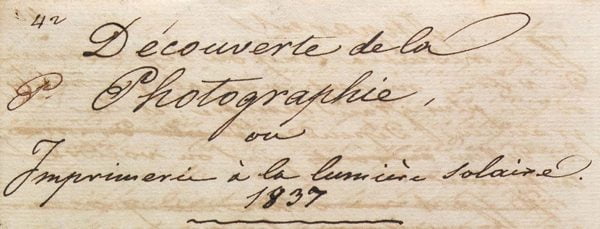 42
Découverte de la
P. Photographie,
ou
Imprimerie à la lumière solaire.
1837